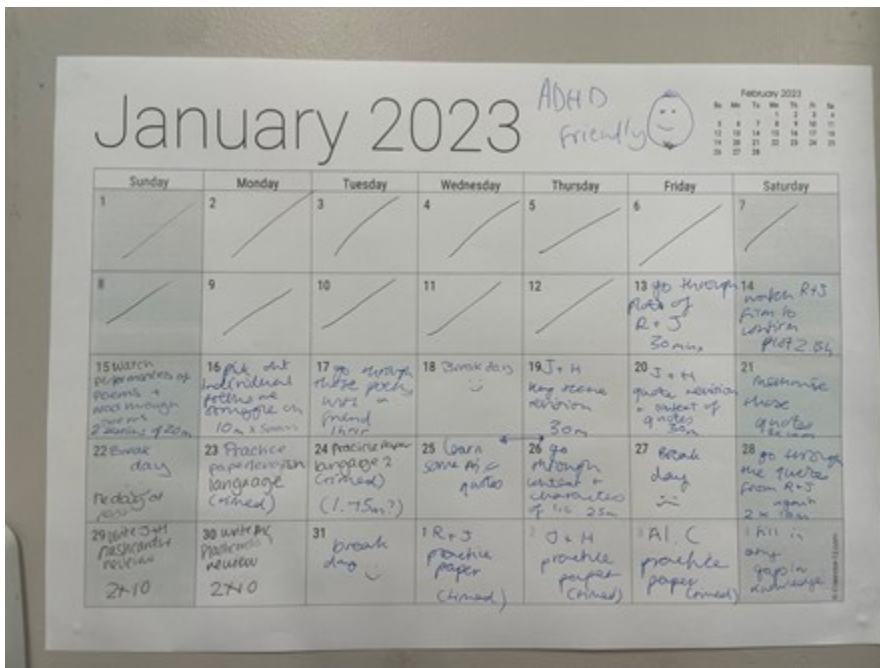 January 2023
ADHD
friendly
February 2023
Su Mo Tu We Th Fr Sa
1 2 3 4
5 6 7 8 9 10 11
12 13 14 15 16 17 18
19 20 21 22 23 24 25
26 27 28
Sunday Monday Tuesday Wednesday Thursday Friday Saturday
1 2 3 4 5 6 7
8 9 10 11 12
13 go through
plot of
R + J
30 mins
14
watch R+J
film to
confirm
plot 2.15h
15 watch
performances of
poems +
through
poems
2 sessions of 20m
16 pick out
individual
poems we
struggle on
10m x
17 go through
these poems
with a
friend
1 hour
18 Break day
19 J + H
key scene
revision
30m
20 J + H
quote revision
+ context of
quotes
30m
21
memorise
those
quotes
22 Break
day
23 Practice
paper
language
(timed)
24 Practice Paper
language 2
(timed)
(1.45m?)
25 learn
some
quotes
26 go
through
context +
characters
of 25m
27 Break
day
28 go through
the quotes
from R+J
again
2 x 10m
29 Write J+H
flashcards +
review
2x10
30 write
flashcards
review
2x10
31
break
day
1 R + J
practice
paper
(timed)
2 J + H
practice
paper
(timed)
3 A.I.C
practice
paper
(timed)
4 fill in
any
gap in
knowledge